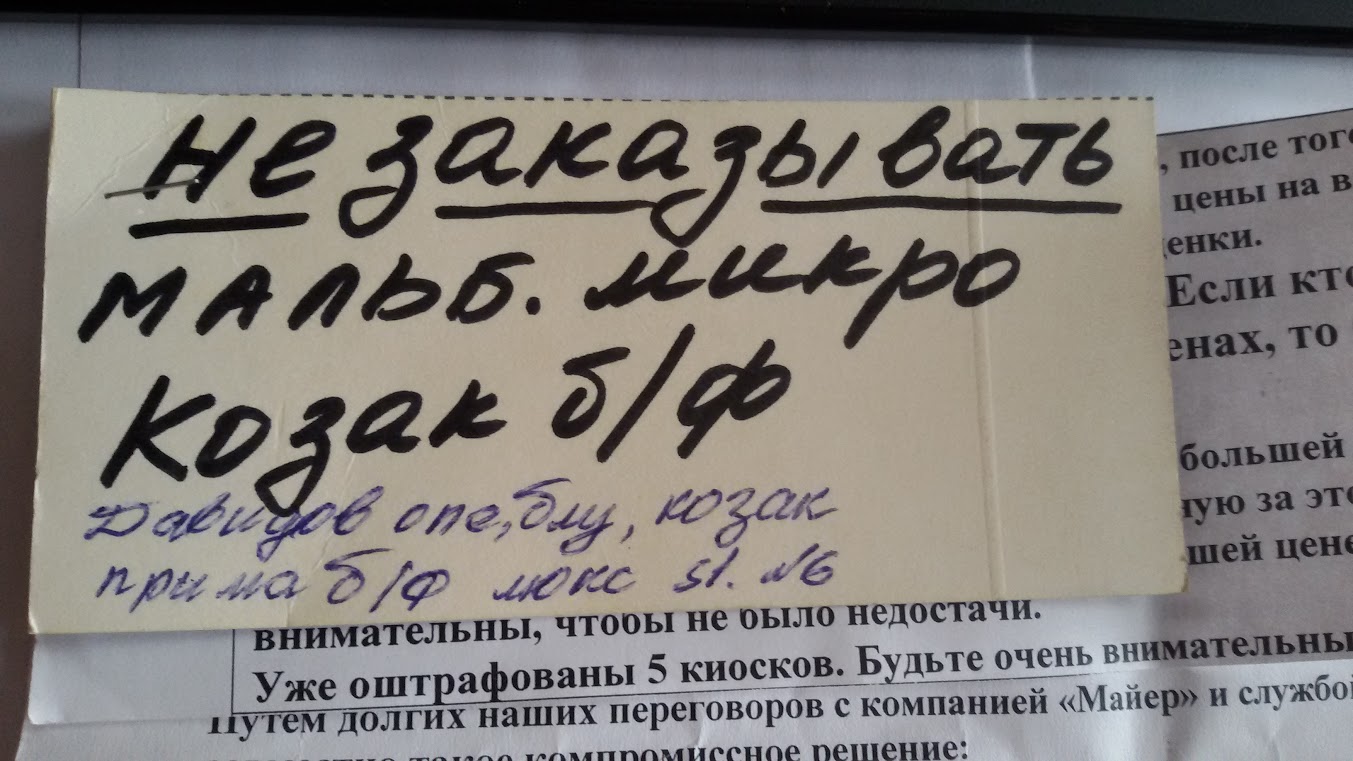 не заказывать
мальб. микро
козак б/ф
Давидов опе, блу, козак
прима б/ф люкс sl. №6
, после того
цены на в
енки.
Если кто
енах, то
большей
ную за это
шей цене
внимательны, чтобы не было недостачи.
Уже оштрафованы 5 киосков. Будьте очень внимательны
Путем долгих наших переговоров с компанией «Майер» и службой
такое компромиссное решение: